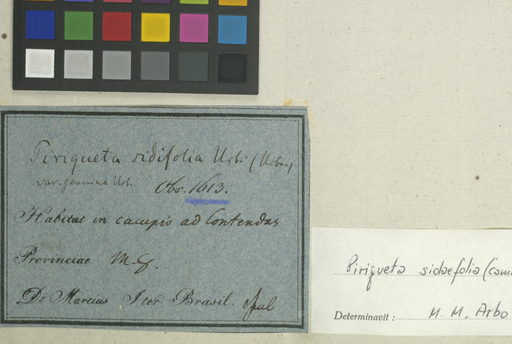 Piriqueta sidifolia Urb. (Urban)
var. genuina Urb. Obs. 1613.
Habitat in campis ad Contendas
Provinciae M. G.
Dr Martius Iter Brasil.
Piriqueta sidaefolia (cam
Determinavit : M. M. Arbo